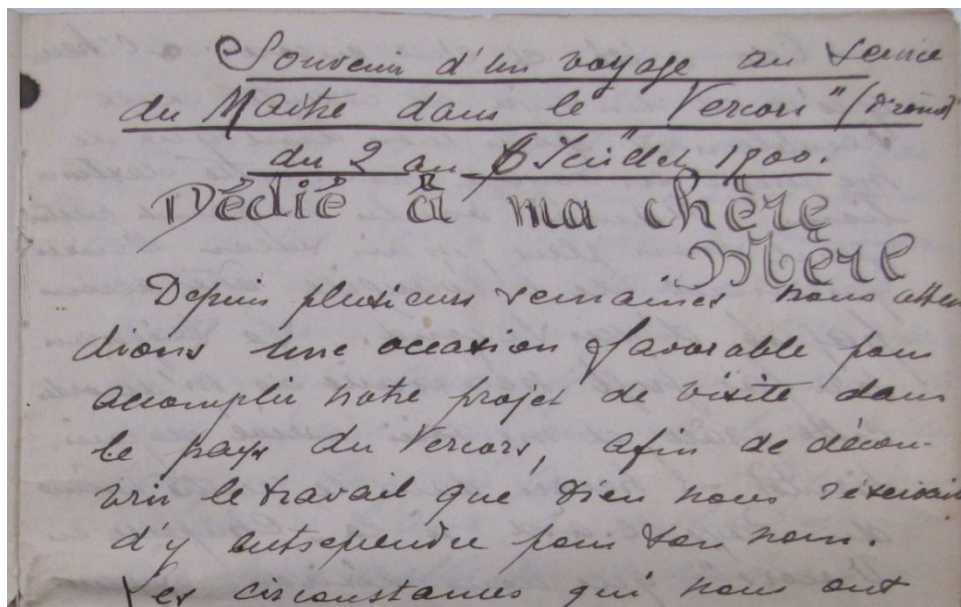 Souvenir d'un voyage au service
du Maître dans le "Vercors" (Drôme)
du 2 au 6 Juillet 1900.
Dédié à ma chère
Mère
Depuis plusieurs semaines nous atten
dions une occasion favorable pour
accomplir notre projet de visite dans
le pays du Vercors, afin de décou-
vrir le travail que Dieu nous réservait
d'y entreprendre pour son nom.
Les circonstances qui nous ont